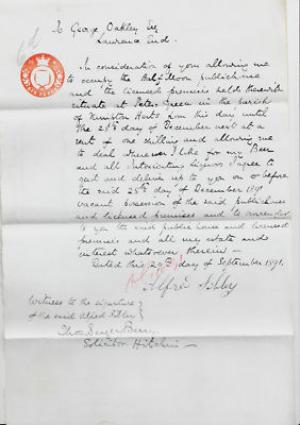 6d
To George Oakley Esq
Lawrence End.
In consideration of your allowing me
to occupy the Half Moon publichouse
and the licensed premises held therewith
situate at Peters Green in the parish
of Kimpton Herts from this day until
the 25th day of December next at a
rent of one shilling and allowing me
to deal wherever I like for my Beer
and all Intoxicating liquors I agree to
quit and deliver up to you on or before
the said 25th day of December 1891
vacant possession of the said publichouse
and licensed premises and to surrender
to you the said public house and licensed
premises and all my estate and
interest whatsoever therein
Dated this 29th day of September 1891.
Alfred Sibley
Witness to the signature
of the said Alfred Sibley
Solicitor Hitchin